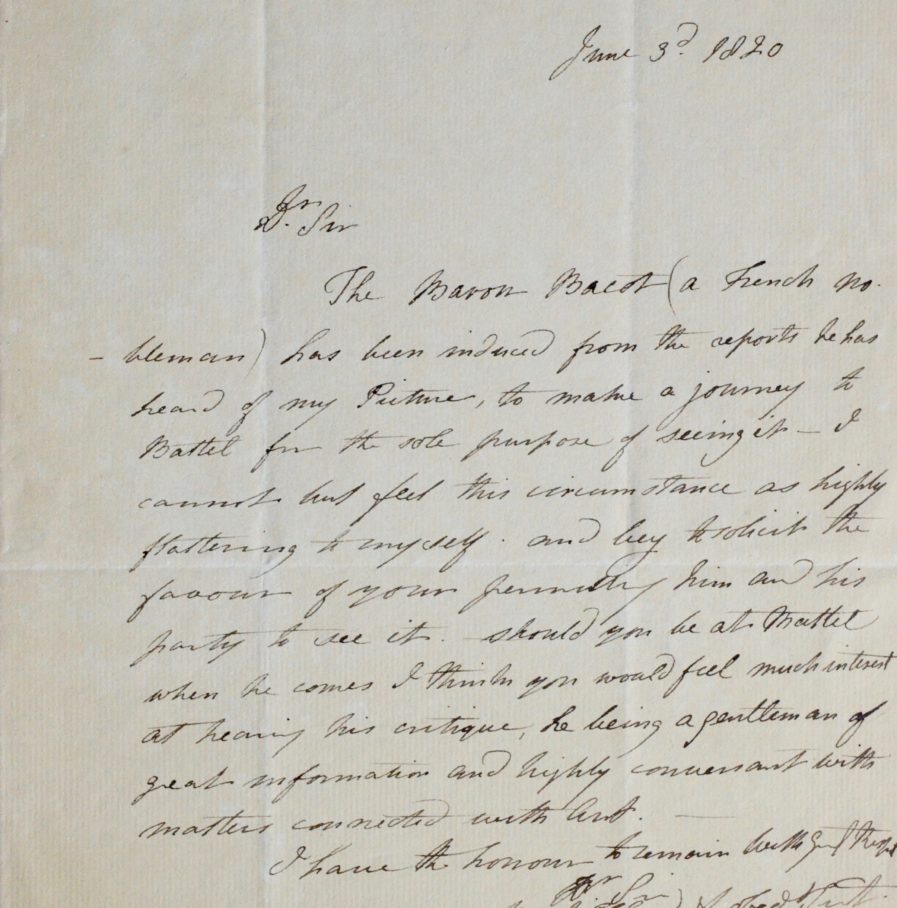 June 3d. 1820
Dr. Sir
The Baron Bacot (a French no-
-bleman) has been induced from the reports he has
heard of my Picture, to make a journey to
Battel for the sole purpose of seeing it – I
cannot but feel this circumstance as highly
flattering to myself. and beg to solicit the
favour of your permitg him and his
party to see it. should you be at Battel
when he comes I think you would feel much interest
at hearing his critique, he being a gentleman of
great information and highly conversant with
matters connected with Art. —
I have the honour to remain with
Dr Sir